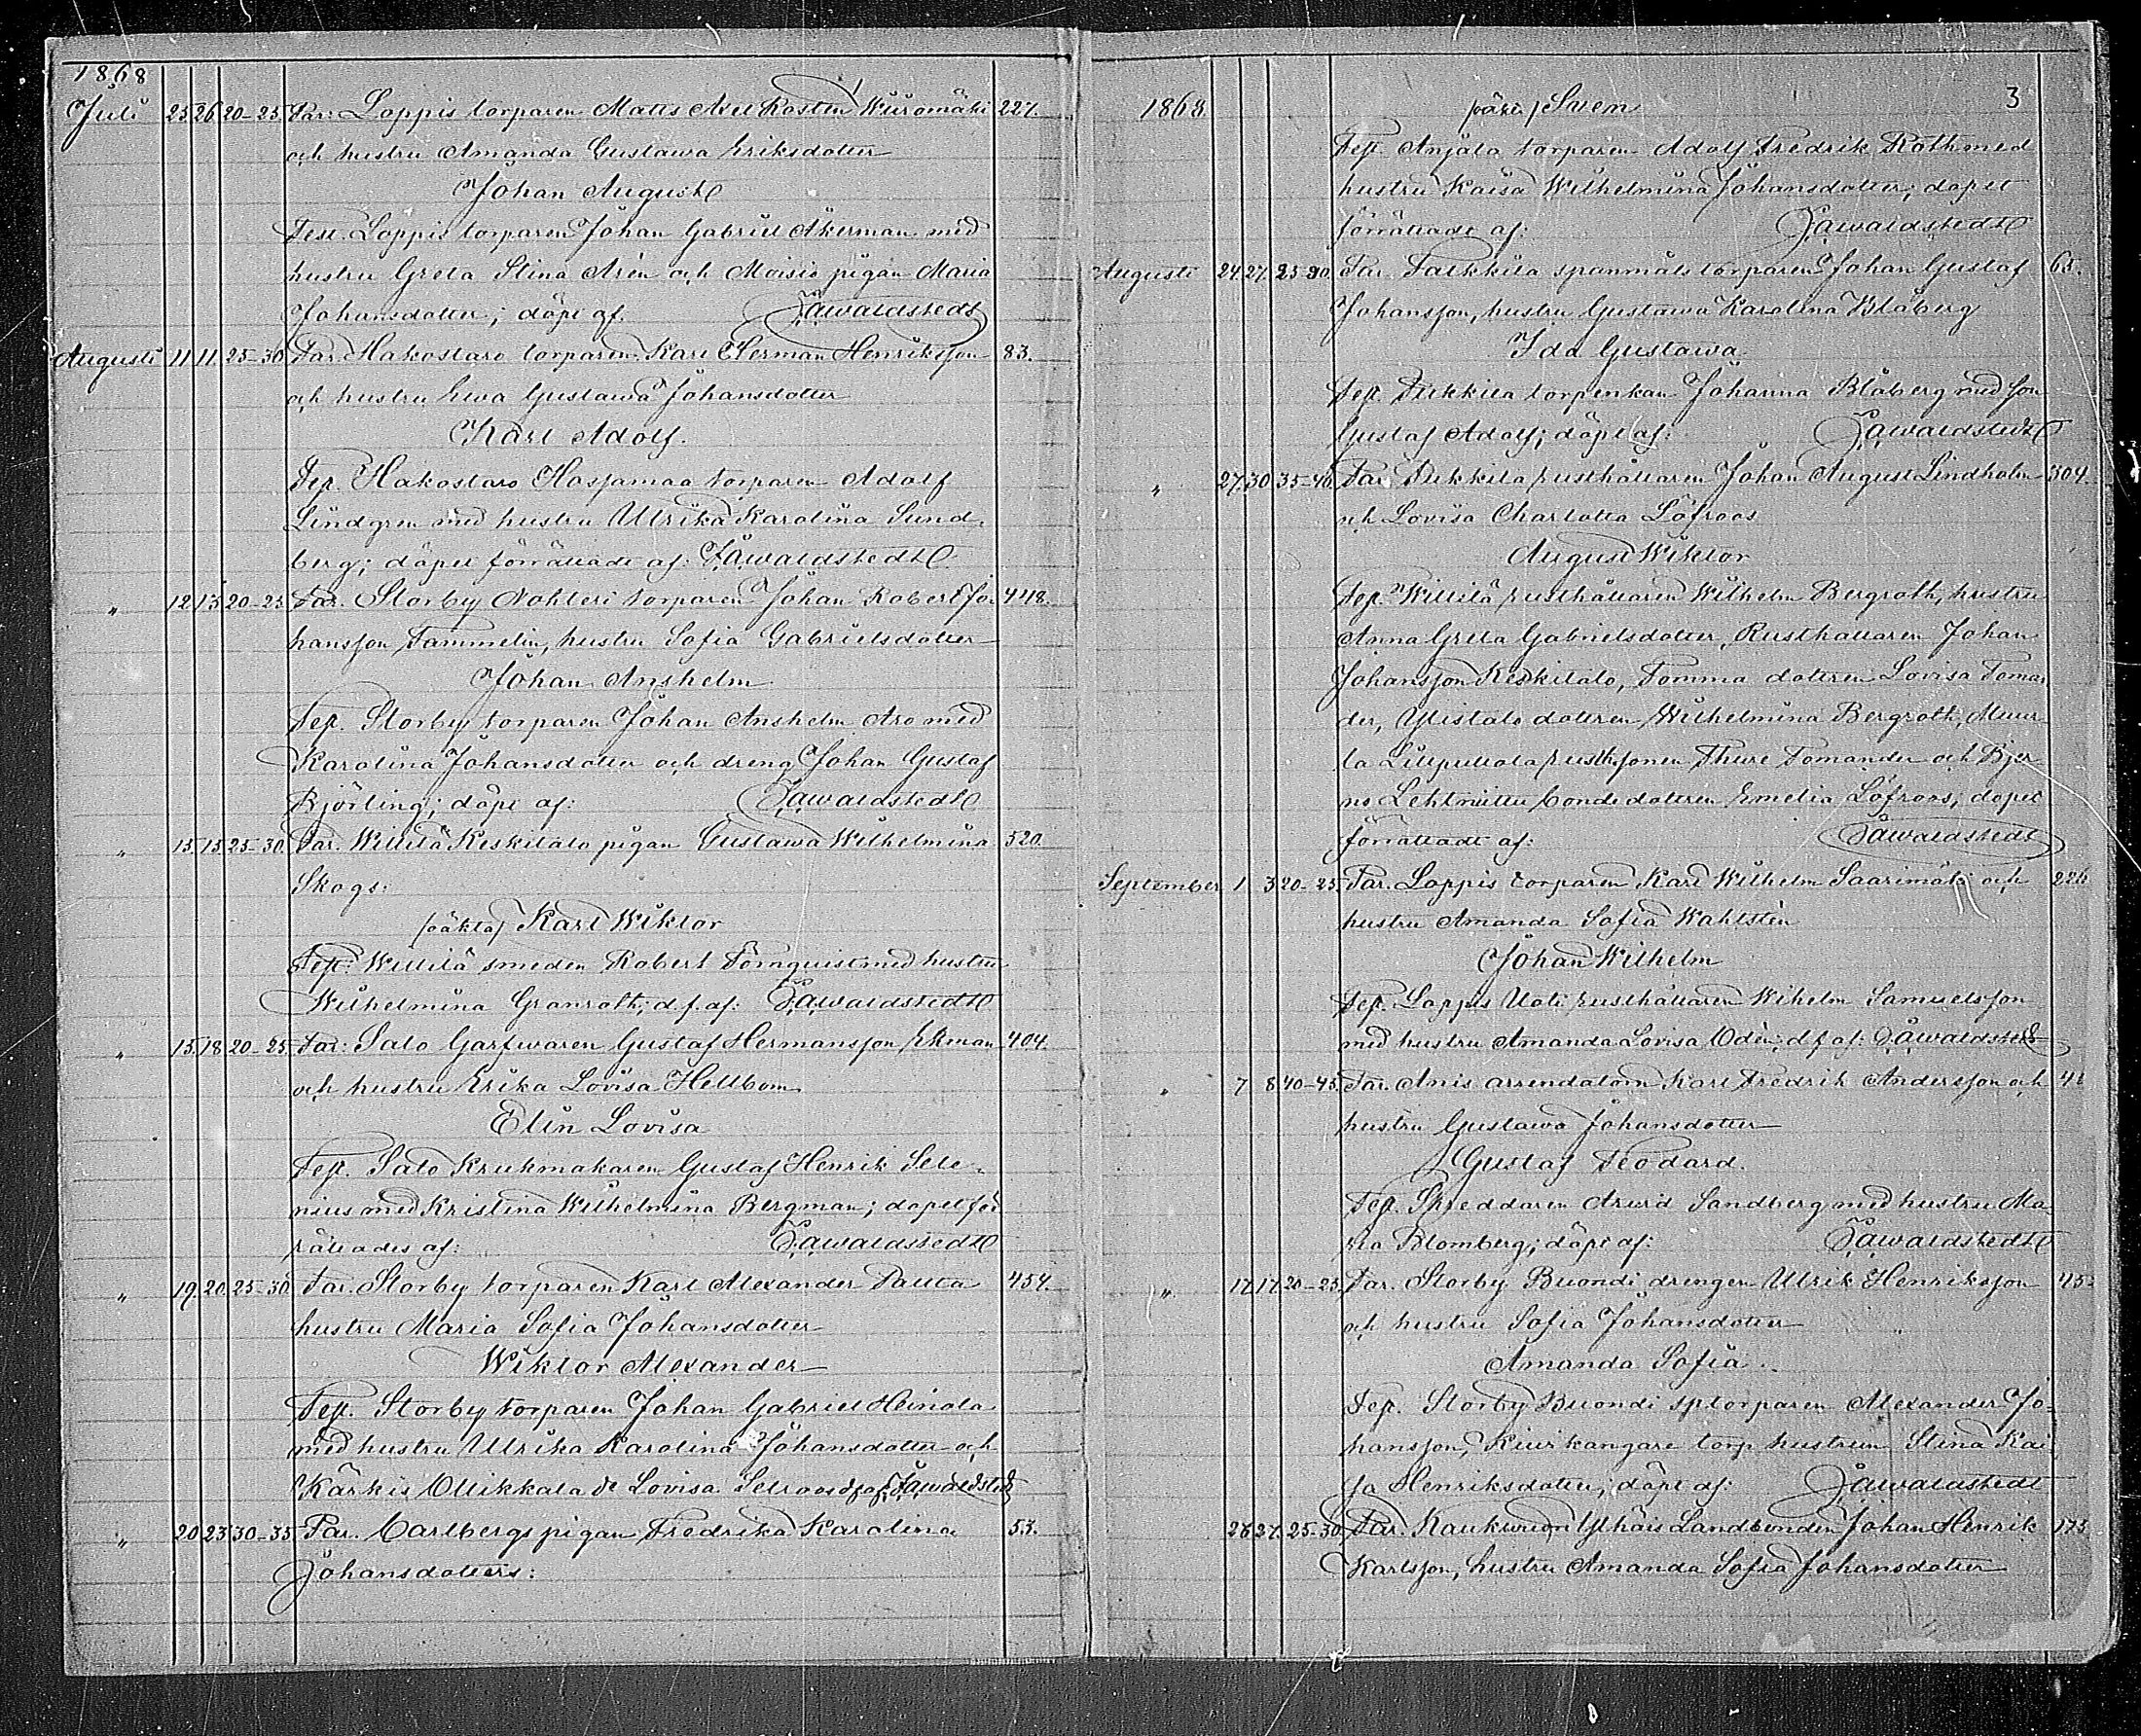 1868
Juli 25 26 20-25. Par: Loppis torparen Matts Axel Rostén Wuromäki 227.
och hustru Amanda Gustawa Eriksdotter
Johan August
Test. Loppis torparen Johan Gabriel Åkerman med
hustru Greta Stina Arén och Moisio pigan Maria
Johansdotter; döpt af.
Augusti 11 11. 25-30. Par. Hakostaro torparen Karl Herman Henriksson 83.
och hustru Ewa Gustawa Johansdotter
Karl Adolf.
Test. Hakostaro Hasjamaa torparen Adolf
Lindgren med hustru Ulrika Karolina Sund-
berg; döpet förrättadt af:
" 12 13 20-25. Par. Storby torparen Johan Robert Jo- 448.
hansson Tammelin, hustru Sofia Gabrielsdotter
Johan Anshelm
Test. Storby torparen Johan Anshelm Aro med
Karolina Johansdotter och dreng Johan Gustaf
Björling; döpt af:
" 15. 15 25-30. Par. Willilä Keskitalo pigan Gustawa Wilhelmina 520.
Skogs:
oäkta Karl Wiktor
Test: Willilä smeden Robert Törnquist med hustru
Wilhelmina Granroth; d.f. af:
" 15. 18 20-25. Par: Salo Garfwaren Gustaf Hermansson Ekman 404.
och hustru Erika Lovisa Hellbom
Elin Lovisa
Test. Salo Krukmakaren Gustaf Henrik Sele-
nius med Kristina Wilhelmina Bergman; döpet för-
rättades af:
" 19. 20. 25-30. Par. Storby torparen Karl Alexander Pauta 454.
hustru Maria Sofia Johansdotter
Wiktor Alexander
Test. Storby torparen Johan Gabriel Heinola
med hustru Ulrika Karolina Johansdotter och
Kärkis Ollikkala dr Lovisa Selroos d.f. af.
" 20 23 30-35. Par. Carlbergs pigan Fredrika Karolina 53.
Johansdotters:
3
1868. oäkta Sven
Test. Anjala torparen Adolf Fredrik Roth med
hustru Kaisa Wilhelmina Johansdotter; döpet
förrättadt af:
Augusti 24. 27. 25-30. Par. spanmåls torparen Johan Gustaf 65.
Johansson, hustru Gustawa Karolina Blåberg
Ida Gustawa
Test. torpenkan Johanna Blåberg med son
Gustaf Adolf; döpt af:
" 27. 30 35-40. Par. rusthållaren Johan August Lindholm 304.
och Lovisa Charlotta Löfroos
August Wiktor
Test. Willilä rusthållaren Wilhelm Bergroth, hustru
Anna Greta Gabrielsdotter, Rusthållaren Johan
Johansson Keskitalo, Tomma dottren Lovisa Toman-
der, Ylistalo dottren Wilhelmina Bergroth, Muur-
la rusth.sonen Thure Tomander och Bjer-
no bonde dottren Emelia Löfroos; döpet
förrättadt af:
September 1 3 20-25. Par. Loppis torparen Karl Wilhelm Saarimäki och 226
hustru Amanda Sofia Wahlstén
Johan Wilhelm
Test. Loppis Uoti rusthållaren Wihelm Samuelsson
med hustru Amanda Lovisa Odén; d.f. af:
" 7 8 40-45. Par. Anis arrendatorn Karl Fredrik Andersson och
hustru Gustawa Johansdotter
Gustaf Teodard.
Test. Skreddaren Arwid Sandberg med hustru Ma-
ria Blomberg; döpt af:
" 17. 17. 20-25. Par. Storby Buondi drengen Ulrik Henriksson
och hustru Sofia Johansdotter
Amanda Sofia.
Test. Storby Buondi sptorparen Alexander Jo-
hansson, Kiurikangare torp hustrun Stina Kai-
sa Henriksdotter; döpt af:
26 27. 25-30. Par. Ylhäis Landbonden Johan Henrik 175
Karlsson, hustru Amanda Sofia Johansdotter